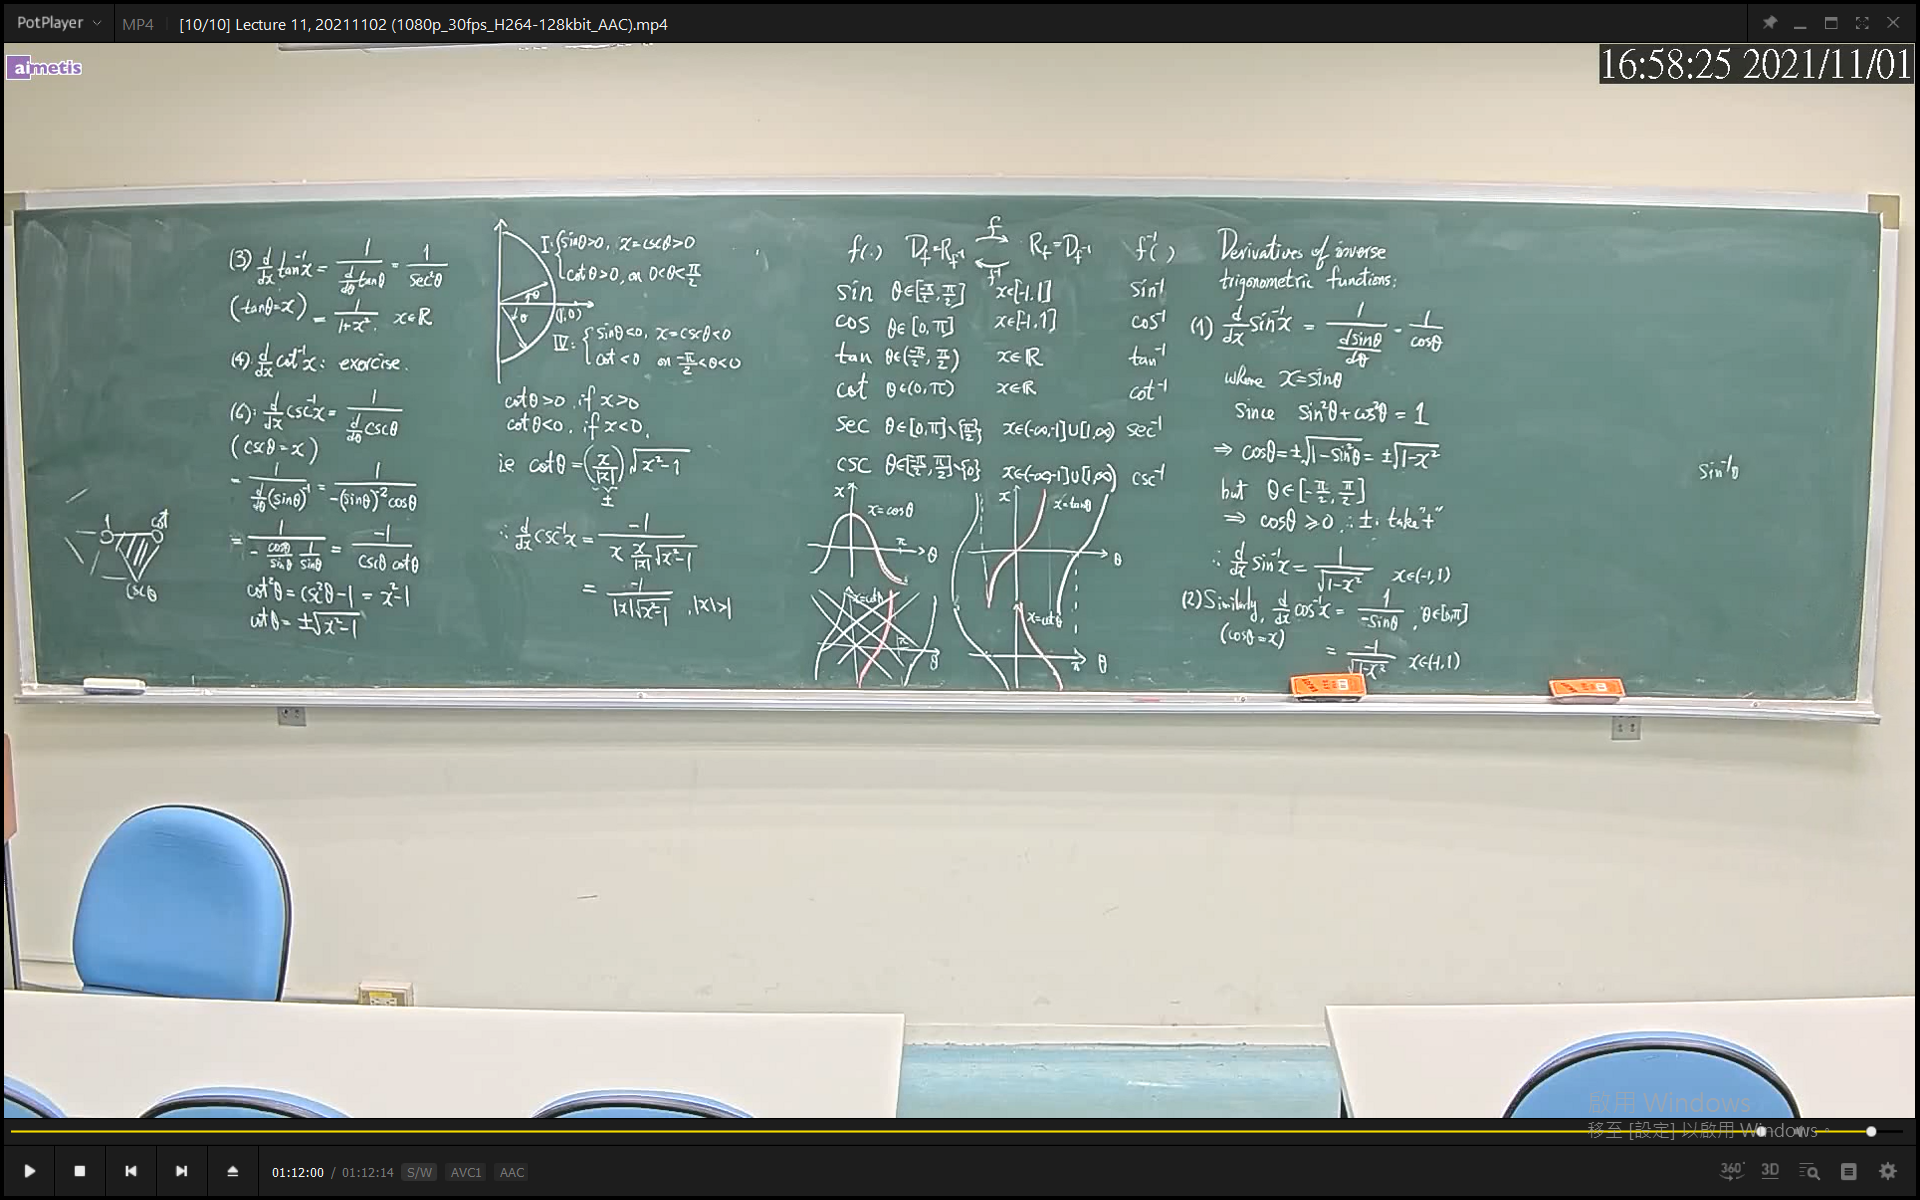 PotPlayer
MP4
[10/10] Lecture 11, 20211102 (1080p_30fps_H264-128kbit_AAC).mp4
aimetis
16:58:25 2021/11/01
(3) d/dx tan⁻¹x = 1/(d/dθ tanθ) = 1/sec²θ
(tanθ=x) = 1/(1+x²), x∈ℝ
(4) d/dx cot⁻¹x: exercise.
(6): d/dx csc⁻¹x = 1/(d/dθ cscθ)
(cscθ=x)
= 1/(d/dθ (sinθ)⁻¹) = 1/(-(sinθ)⁻² cosθ)
= 1/(-cosθ/sinθ 1/sinθ) = -1/(cscθ cotθ)
cot²θ = csc²θ-1 = x²-1
cotθ = ±√(x²-1)
1
cot
cscθ
I: { sinθ>0, x=cscθ>0
cotθ>0, on 0<θ<π/2
θ
(1,0)
θ
IV: { sinθ<0, x=cscθ<0
cot<0 on -π/2<θ<0
cotθ>0, if x>0
cotθ<0, if x<0,
i.e. cotθ = (x/|x|)√(x²-1)
±
∴ d/dx csc⁻¹x = -1/(x x/|x| √(x²-1))
= -1/(|x|√(x²-1)), |x|>1
f(.) D_f=R_f⁻¹ f f⁻¹ R_f=D_f⁻¹ f⁻¹( )
sin θ∈[-π/2, π/2] x∈[-1,1] sin⁻¹
cos θ∈[0,π] x∈[-1,1] cos⁻¹
tan θ∈(-π/2, π/2) x∈ℝ tan⁻¹
cot θ∈(0,π) x∈ℝ cot⁻¹
sec θ∈[0,π]∖{π/2} x∈(-∞,-1]∪[1,∞) sec⁻¹
csc θ∈[-π/2, π/2]∖{0} x∈(-∞,-1]∪[1,∞) csc⁻¹
x x=cosθ π θ
x x=tanθ θ
x=cotθ π θ
x=cotθ π θ
Derivatives of inverse
trigonometric functions:
(1) d/dx sin⁻¹x = 1/(dsinθ/dθ) = 1/cosθ
where x=sinθ
Since sin²θ+cos²θ=1
⇒ cosθ=±√(1-sin²θ) = ±√(1-x²)
but θ∈[-π/2, π/2]
⇒ cosθ≥0 ∴ ±: take "+"
∴ d/dx sin⁻¹x = 1/√(1-x²) x∈(-1,1)
(2) Similarly, d/dx cos⁻¹x = 1/-sinθ, θ∈[0,π]
(cosθ=x)
= -1/√(1-x²) x∈(-1,1)
sin⁻¹θ
啟用 Windows
移至 [設定] 以啟用 Windows。
01:12:00 / 01:12:14 S/W AVC1 AAC
360° 3D